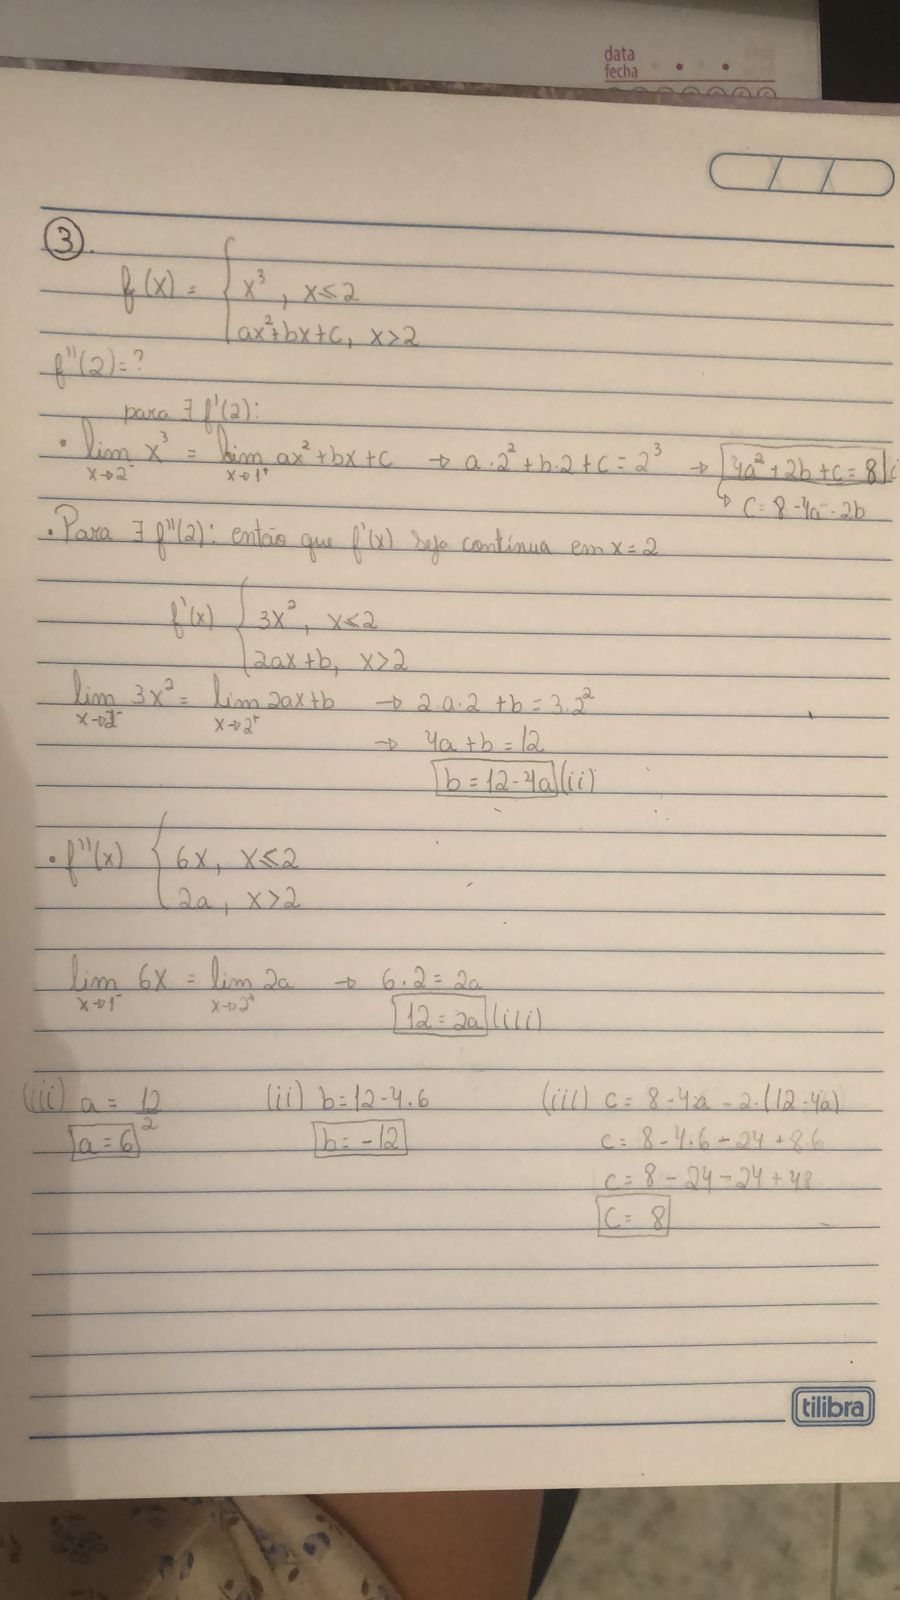 data
fecha
3.
f(x) = { x³, x≤2
ax²+bx+c, x>2
f''(2)=?
para ∃ f'(2):
• lim x→2⁻ x³ = lim x→1⁺ ax²+bx+c → a·2²+b·2+c=2³ → 4a²+2b+c=8 (i
↳ c=8-4a-2b
• Para ∃ f''(2): então que f'(x) seja contínua em x=2
f'(x) { 3x², x≤2
2ax+b, x>2
lim 3x² = lim x→2⁺ 2ax+b → 2·a·2+b=3·2²
→ 4a+b=12
b=12-4a (ii)
• f''(x) { 6x, x≤2
2a, x>2
lim x→1⁻ 6x = lim x→2⁺ 2a → 6·2=2a
12=2a (iii)
(iii) a = 12/2 (ii) b=12-4.6 (iii) c= 8-4·a-2·(12-4a)
a=6 b=-12 c= 8-4·6-24+8.6
c= 8-24-24+48
c= 8
tilibra